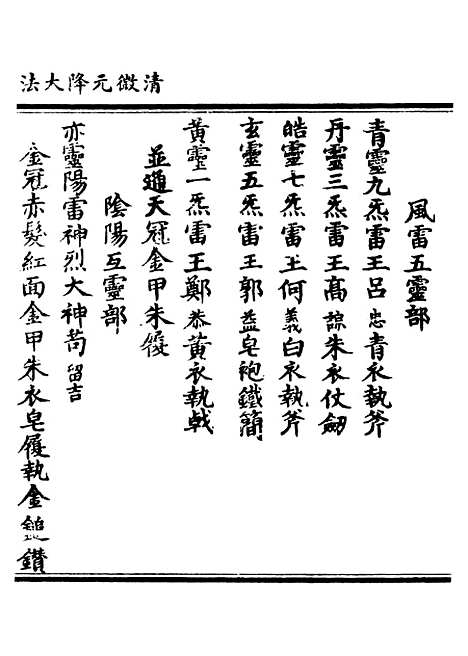 清微元降大法
風雷五靈部
青靈九炁雷王呂忠青衣執斧
丹靈三炁雷王高諒朱衣仗劒
皓靈七炁雷王何義白衣執斧
玄靈五炁雷王郭益皂袍鐵簡
黃靈一炁雷王鄭恭黃衣執戟
並通天冠金甲朱履
陰陽互靈部
亦靈陽雷神烈大神苟留吉
金冠赤髮紅面金甲朱衣皂履執金鎚鑽